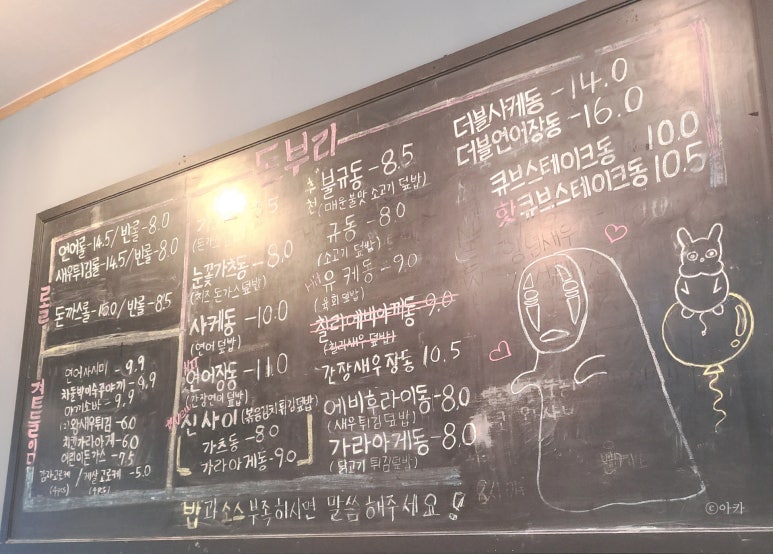 돈부리
롤
연어롤-14.5/반롤-8.0
새우튀김롤-14.5/반롤-8.0
돈까스롤-15.0/반롤-8.5
곁들임
연어사시미-9.9
차돌박이숙주야끼-9.9
야끼소바-9.9
왕새우튀김-6.0
치킨가라아게-6.0
어린이돈가스-7.5
감자고로케/게살고로케-5.0
(4pcs) (4pcs)
눈꽃가츠동-8.0
(치즈돈가스덮밥)
사케동-10.0
(연어덮밥)
연어장동-11.0
(간장연어덮밥)
신사이(볶음김치튀김덮밥)
가츠동-8.0
가라아게동-9.0
추천 불규동-8.5
(매운불맛 소고기 덮밥)
규동-8.0
(소고기 덮밥)
유케동-9.0
(육회덮밥)
칠리에비마끼동-9.0
(칠리새우 덮밥)
간장새우장동 10.5
에비후라이동-8.0
(새우튀김덮밥)
가라아게동-8.0
(닭고기 튀김덮밥)
더블사케동-14.0
더블연어장동-16.0
큐브스테이크동 10.0
핫큐브스테이크동 10.5
밥과소스부족하시면 말씀해주세요!
©아카